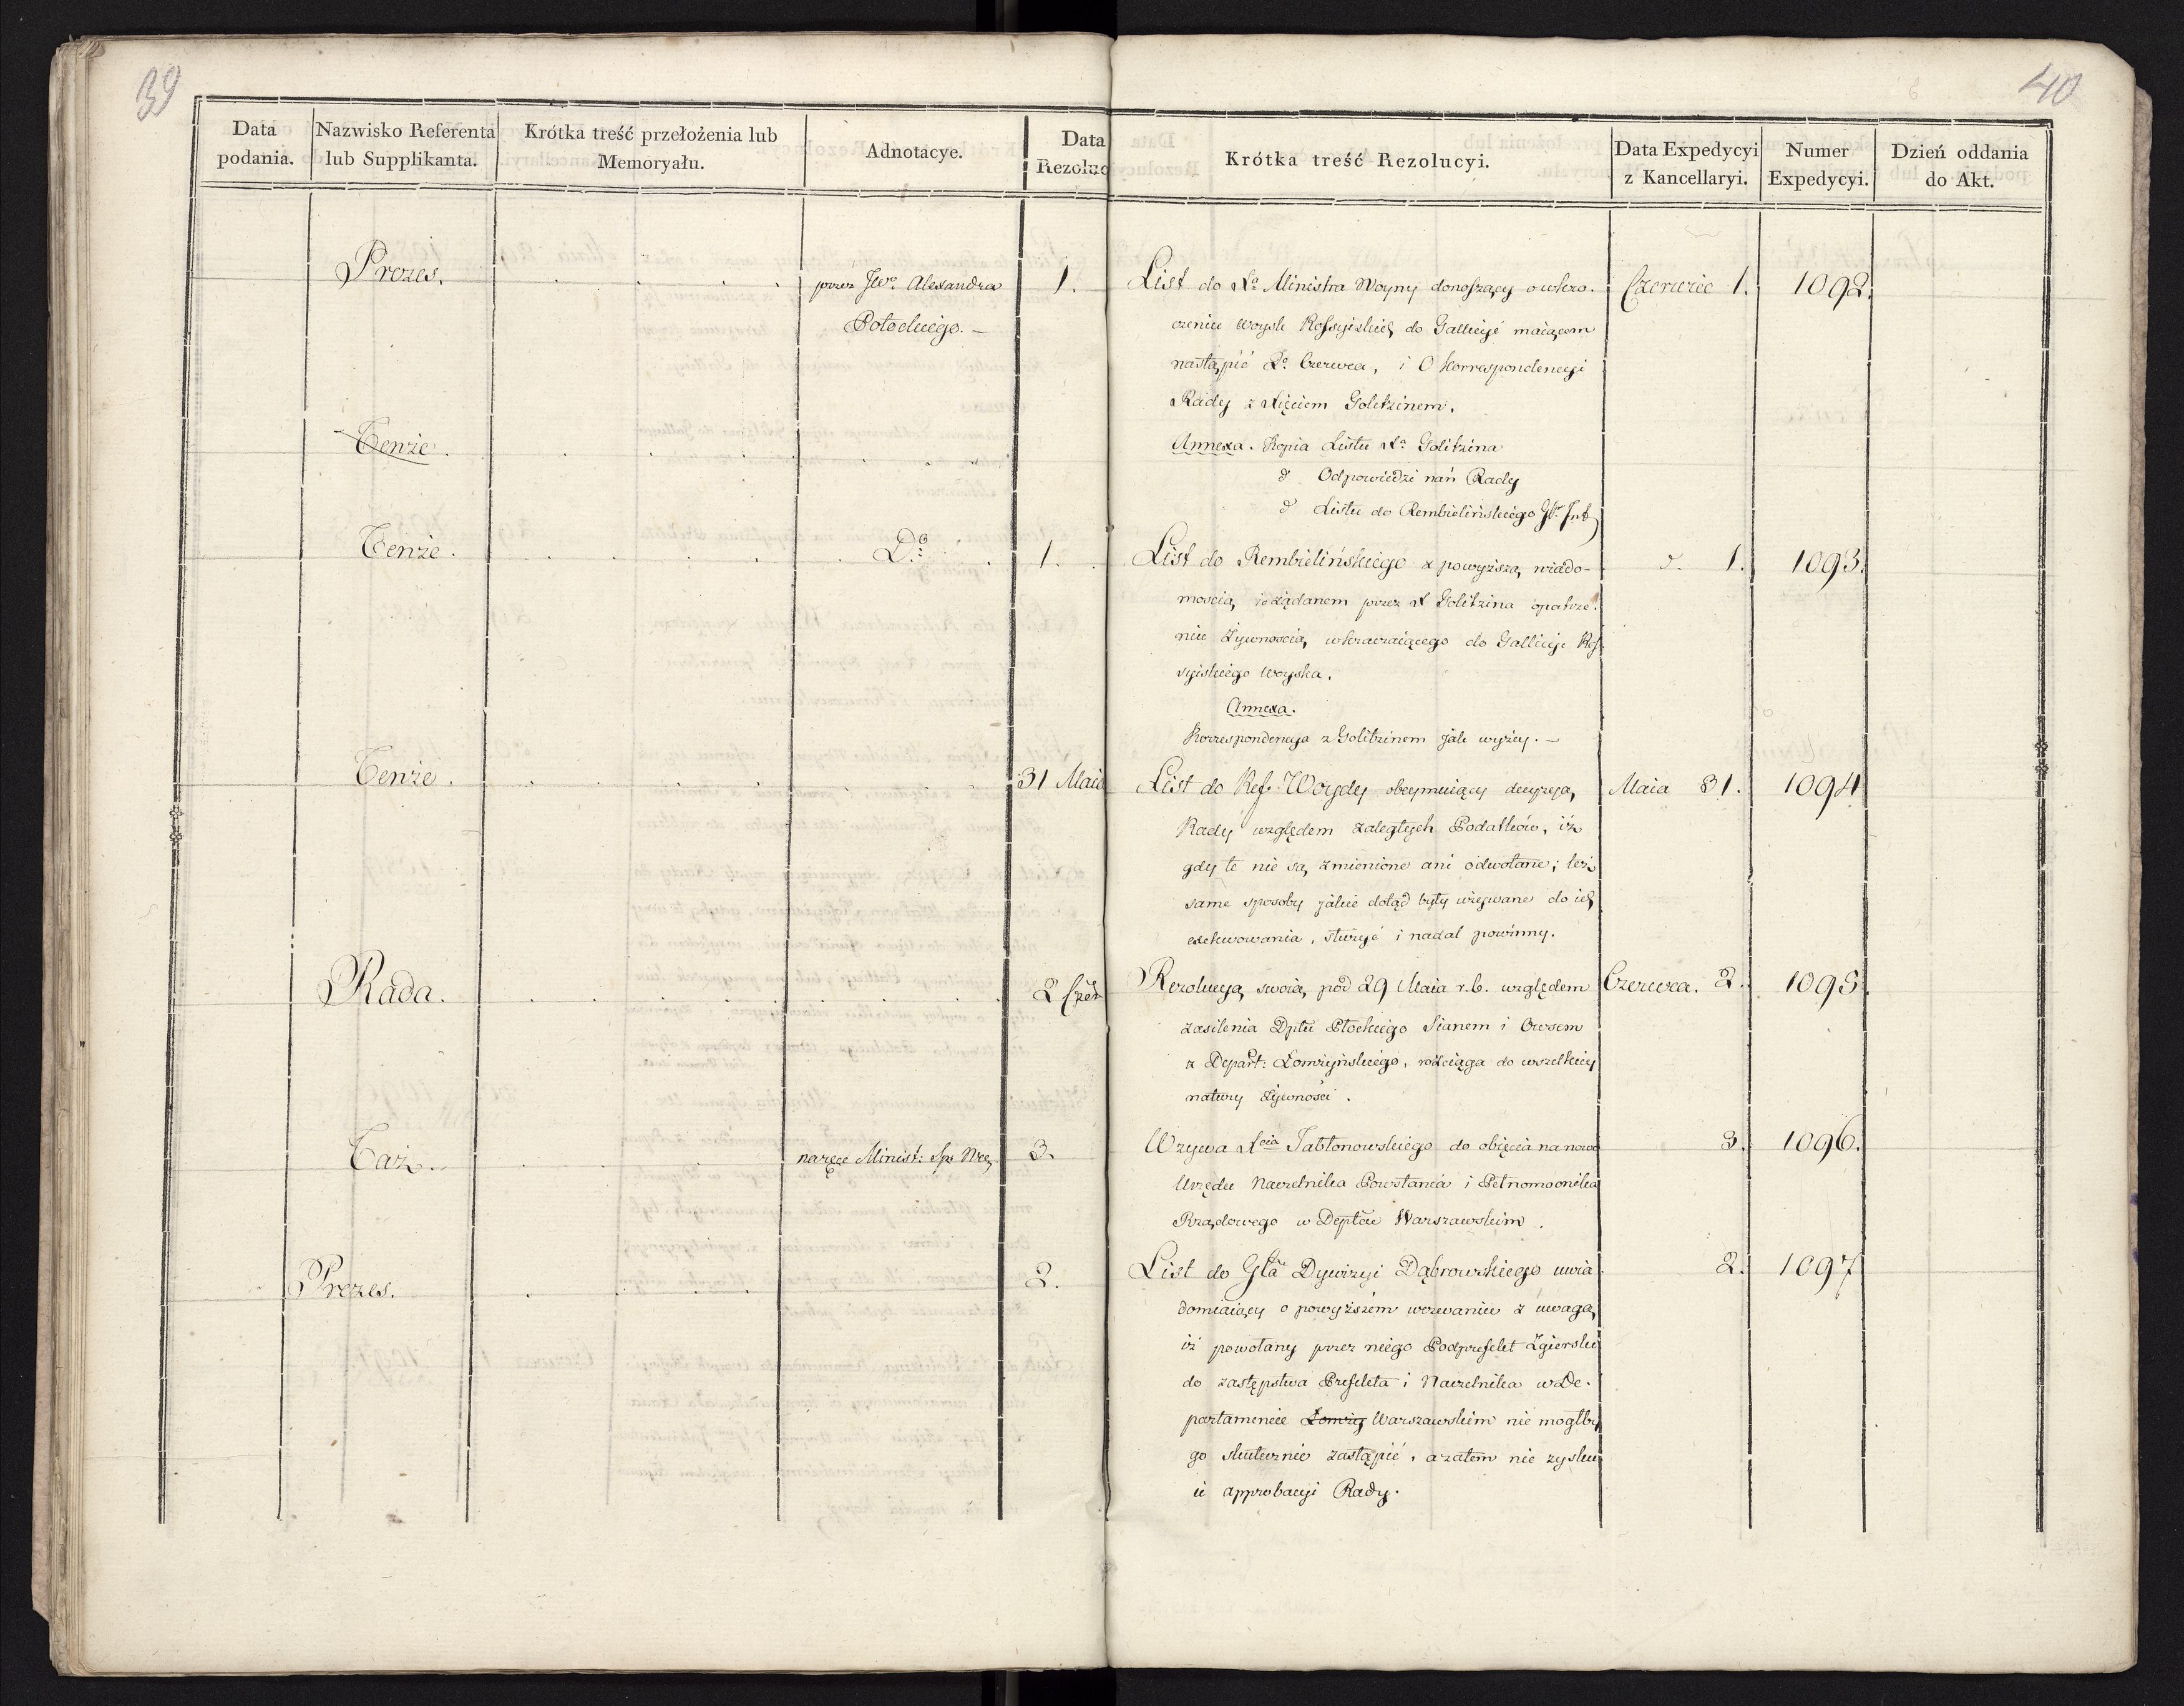 39
40
Data podania.
Nazwisko Referenta lub Supplikanta.
Krótka treść przełożenia lub Memoryału.
Adnotacye.
Data Rezoluc
Krótka treść Rezolucyi.
Data Expedycyi z Kancellaryi.
Numer Expedycyi.
Dzień oddania do Akt.
Prezes. . . . . . przez JW. Alexandra 1. List do Xa Ministra Woyny donoszący o wkro- Czerwiec 1. 1092.
Potockiego. — czeniu woysk Rossyiskich do Gallicyi maiącem
nastąpić 2o Czerwca, i O Korrespondencyi
Rady z Xięciem Golitzinem.
Tenże. . . . . . Annexa. Kopia Listu Xa Golitzina
do Odpowiedzi nań Rady
do Listu do Rembielińskiego Gł. Int
Tenże. . . . . . Do . 1. List do Rembielińskiego z powyższą wiado- do. 1. 1093.
mością, i żądanem przez X Golitzina opatrze-
niu żywnością, wkraczaiącego do Gallicyi Ros-
syiskiego woyska.
Annexa.
Korrespondencya z Golitzinem jak wyżey. —
Tenże. . . . . . 31 Maia List do Ref. Woydy obeymuiący decyzyą, Maia 31. 1094
Rady względem zaległych Podatków, iż
gdy te nie są zmienione ani odwołane; też
same sposoby jakie dotąd były używane do ich
exekwowania, służyć i nadal powinny.
Rada. . . . . . 2 Czer Rezolucyą swoią pod 29 Maia r.b. względem Czerwca. 2. 1095.
zasilenia Dptu Płockiego Sianem i Owsem
z Depart: Łomżyńskiego, rozciąga do wszelkiey
natury żywności.
Taż. . . . . . na ręce Minist: Spr. Wee 3. Wzywa Xcia Jabłonowskiego do obięcia na nowo 3. 1096.
Urzędu Naczelnika Powstania i Pełnomocnika
Rządowego w Deptcie Warszawskim.
Prezes. . . . . . 2. List do Gła Dywizyi Dąbrowskiego uwia 2. 1097
domiaiący o powyższem wezwaniu z uwagą,
iż powołany przez niego Podprefekt Zgierski
do zastępstwa Prefekta i Naczelnika w De-
partamencie Łomży Warszawskim nie mogłby
go skutecznie zastąpić, a zatem nie zysku
ie approbacyi Rady.